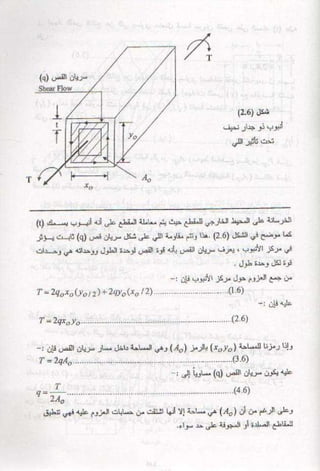 T
(q) جريان القص
Shear Flow
t
yo
T
xo
Ao
شكل (2.6)
أنبوب ذو جدار نحيف
تحت تأثير اللي
الخرسانة على المحيط الخارجي للمقطع بحيث يتم معاملة المقطع على أنه أنبوب بسمك (t)
كما موضح في الشكل (2.6). هذا وتتم مقاومة اللي على شكل جريان قص (q) ثابت يؤثر
في مركز الأنبوب ، ويعرف جريان القص بأنه قوة القص لوحدة الطول ووحداته هي وحدات
قوة لكل وحدة طول .
من جمع العزوم حول مركز الأنبوب فإن :-
T = 2qoxo(yo/2)+2qyo(xo/2)..............................(1.6)
عليه فإن :-
T = 2qxoyo..............................(2.6)
وإذا رمزنا للمساحة (xoyo) بالرمز (Ao) وهي المساحة داخل مسار جريان القص فإن :-
T = 2qAo..............................(3.6)
عليه يكون جريان القص (q) مساويا إلى :-
q = T/2Ao..............................(4.6)
وعلى الرغم من أن (Ao) هي مساحة إلا أنها اشتقت من حسابات العزوم عليه فهي تنطبق
للمقاطع الصلدة أو المجوفة على حد سواء.